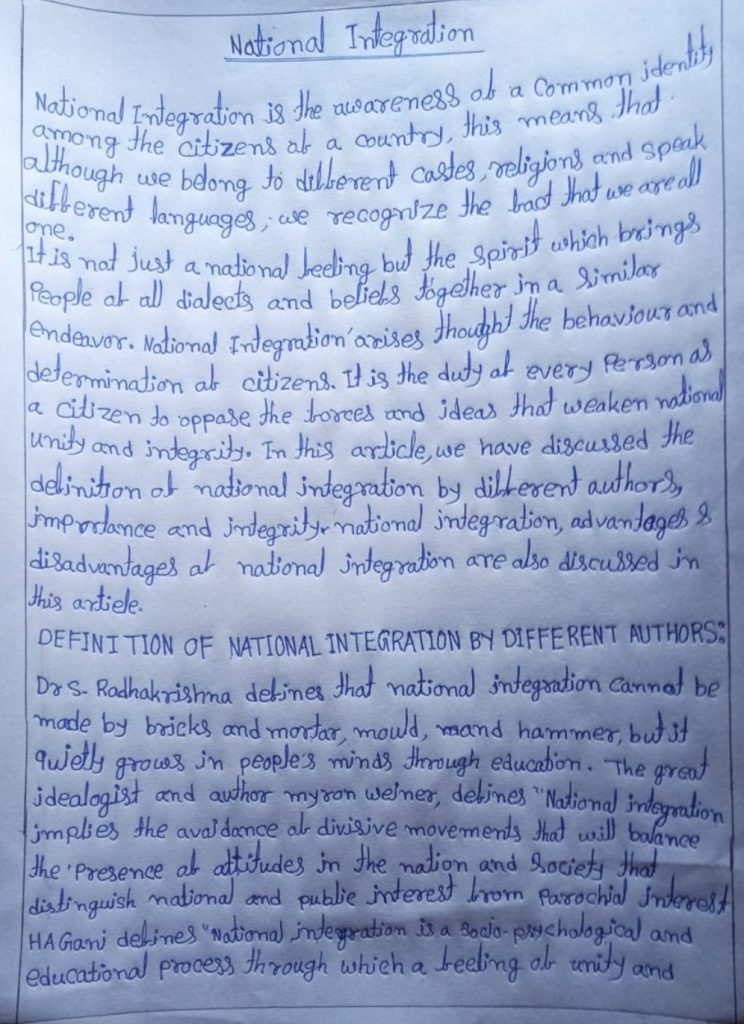 National Integration
National Integration is the awareness of a common identity
among the citizens of a country, this means that
although we belong to different castes, religions and speak
different languages, we recognize the fact that we are all
one.
It is not just a national feeling but the spirit which brings
People of all dialects and beliefs together in a similar
endeavor. National Integration arises thought the behaviour and
determination of citizens. It is the duty of every Person as
a citizen to oppase the forces and ideas that weaken national
unity and integrity. In this article, we have discussed the
definition of national integration by different authors,
importance and integrity, national integration, advantages &
disadvantages of national integration are also discussed in
this article.
DEFINITION OF NATIONAL INTEGRATION BY DIFFERENT AUTHORS:
Dr S. Radhakrishna defines that national integration cannot be
made by bricks and mortar, mould, and hammer, but it
quietly grows in people's minds through education. The great
idealogist and author myron weiner, defines "National integration
implies the avoidance of divisive movements that will balance
the presence of attitudes in the nation and society that
distinguish national and public interest from parochial interest
HA Gani defines "National integration is a socio-psychological and
educational process through which a feeling of unity and